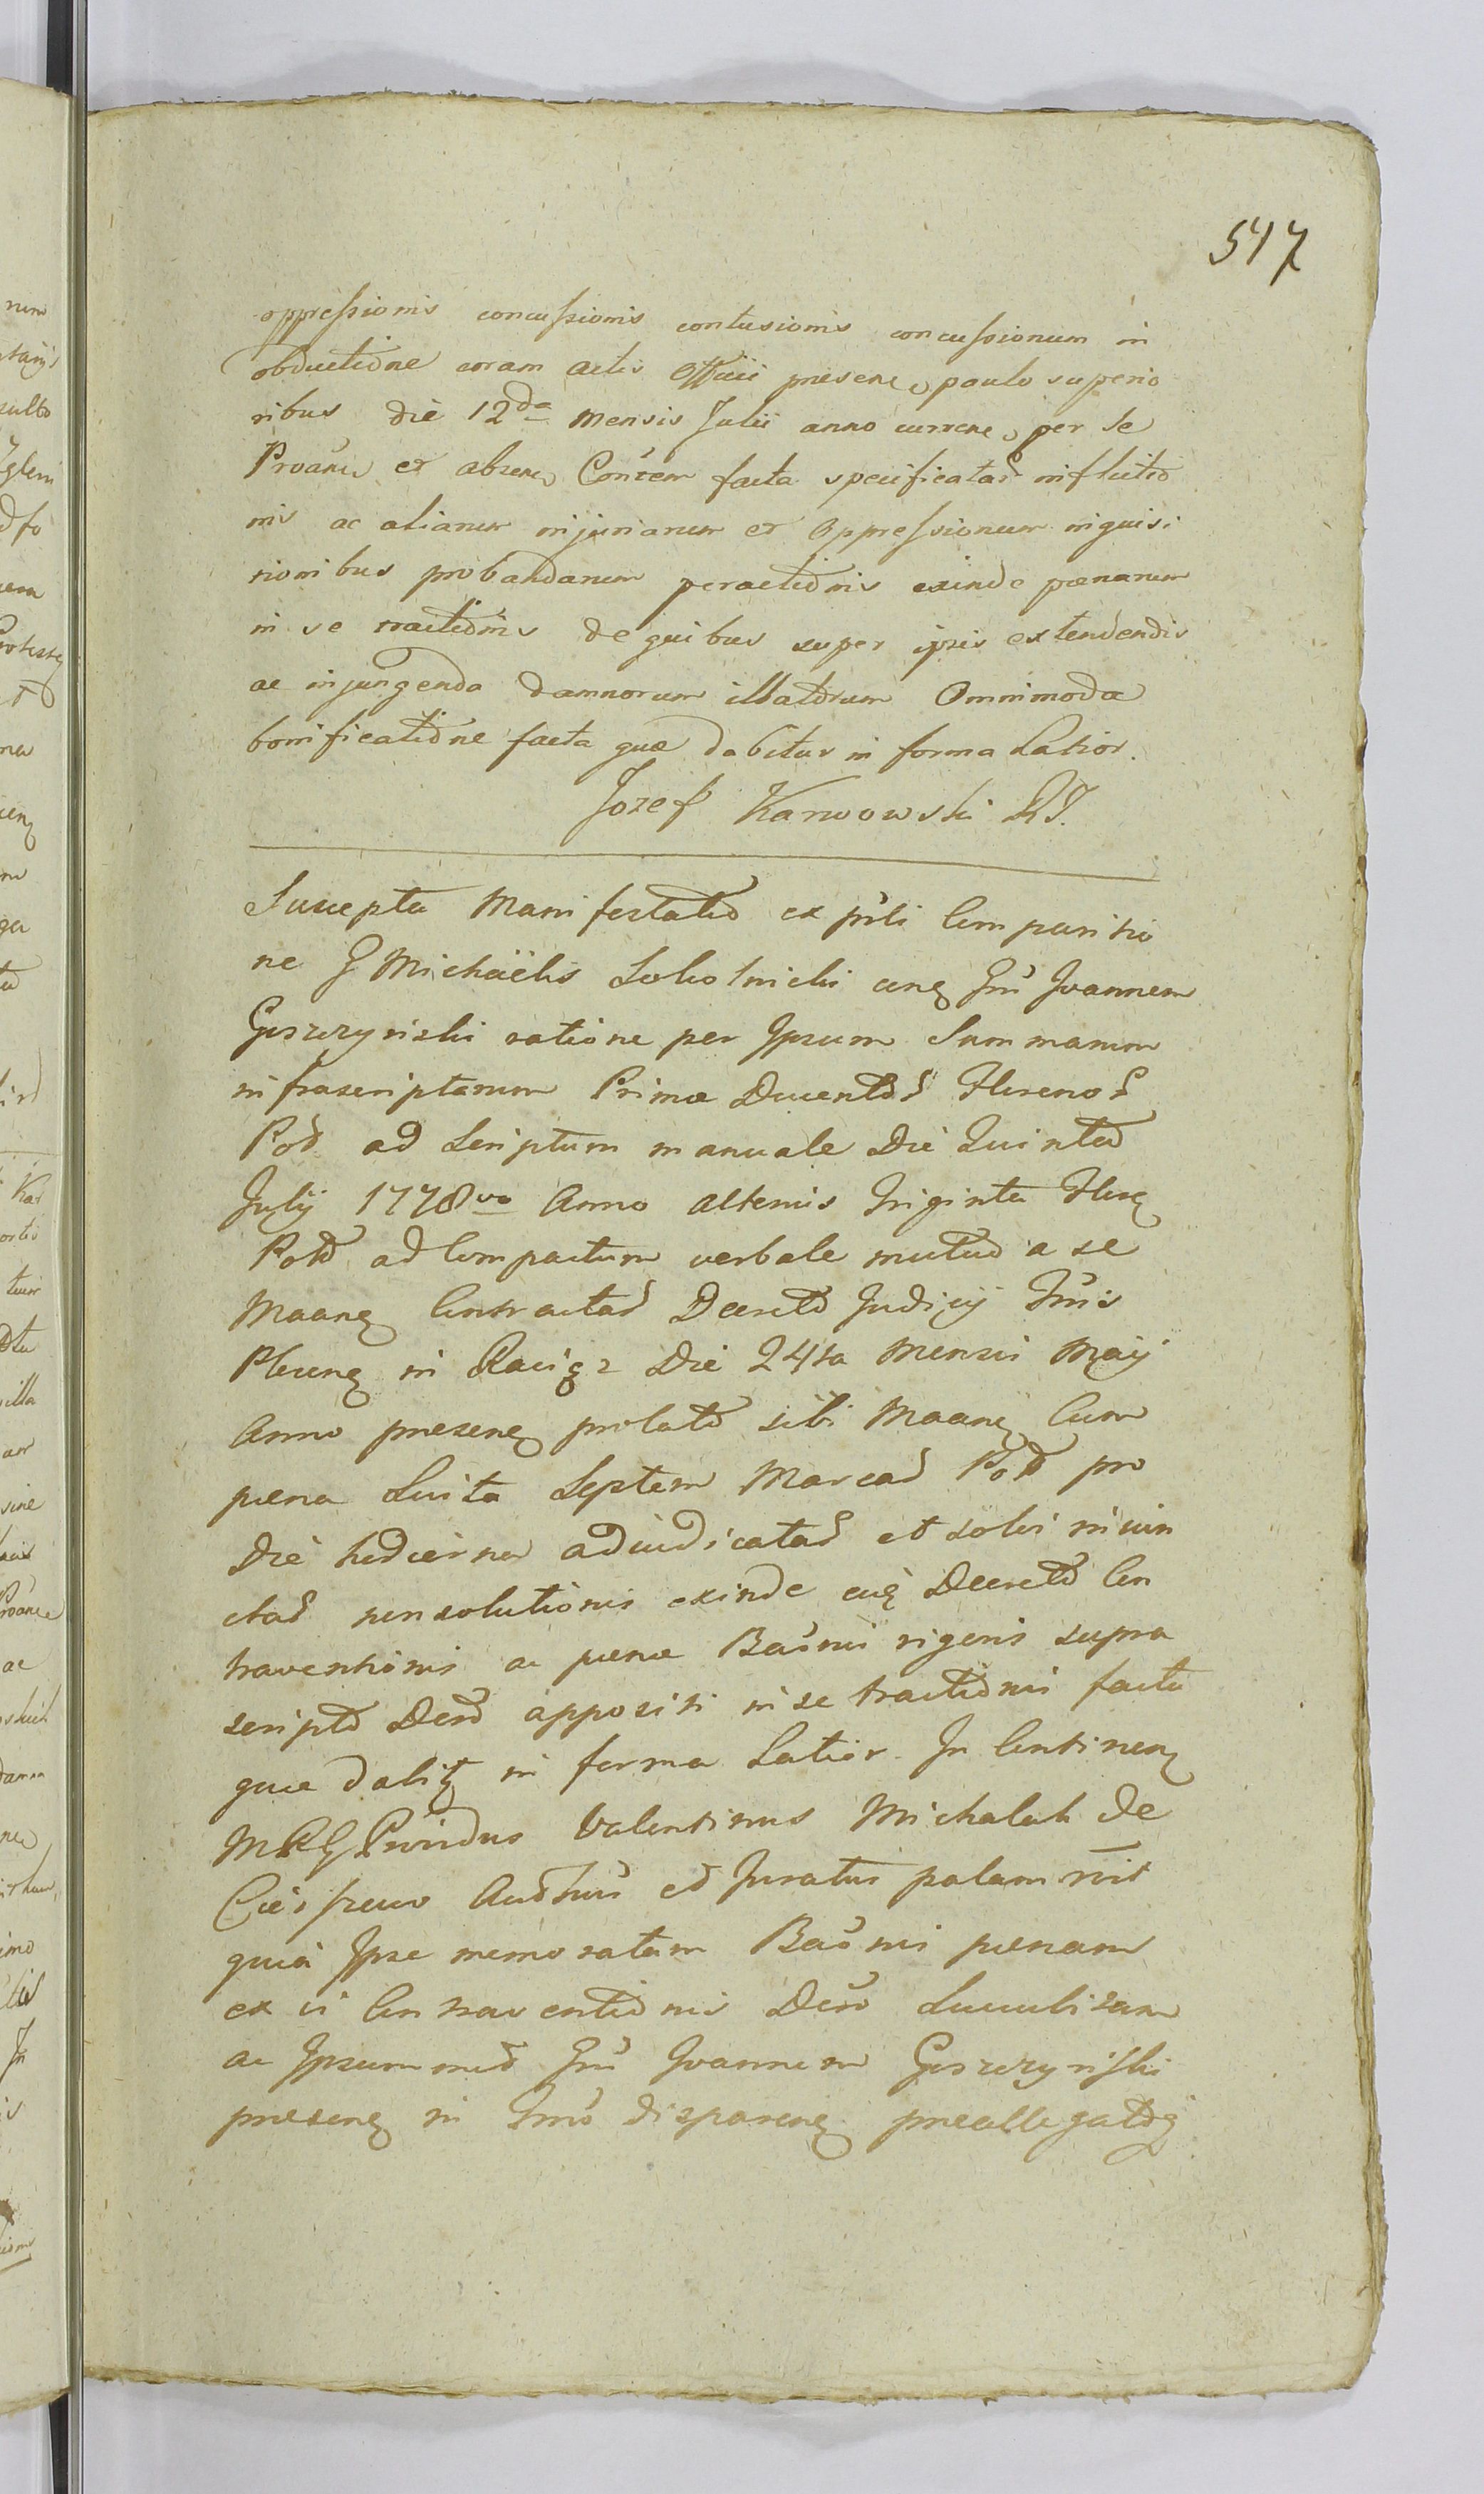 547
oppressionis concussionis contusionis concussionum in
obductione coram actis Officii presen, paulo superio
ribus die 12da mensis Julii anno curren, per se
Proan, et absen, Contem facta specificatar inflictio
nis ac aliarum injuriarum et Oppressionum inquisi
tionibus probandarum peractionis exinde pœnarum
in se tractionis de quibus super ipsis extendendis
ac injungenda damnorum illatorum Omnimoda
bonificatione facta quæ dabitur in forma Latior.
Jozef Karwowski
Suscepta Manifestatio ex prli Comparitio
ne G Michäelis Sokolnicki con Gnu Joannem
Goszczynski ratione per Ipsum Summarum
infrascriptarum Primæ Ducentos Florenos
Pol ad Scriptum manuale Die Quinta
July 1778vo Anno alterius Triginta Flor
Polo ad Compactum verbale mutuo a se
Maan Contractas Decreto Judicij Tris
Plocen in Raciąz Die 24ta Mensis Maij
Anno presen prolato sibi Maan Cum
pœna Luita Septem Marcas Pol pro
Die hodierna adiudicatas et solvi iniun
ctas nonsolutionis exinde eid Decreto Con
traventionis ac pœnæ Baonis vigoris supra
scripto Dero appositi in se tractionis facta
quæ dabit in forma Latior. In Continen
MRG Providus Valentinus Michalak de
et Juratus palam rnit
quia Ipse memoratam Baonis pœnam
ex vi Contraventionis Dero
ac Ipsummet Gnu Joannem Goszczynski
presen in Tmo disparen preallegatoq